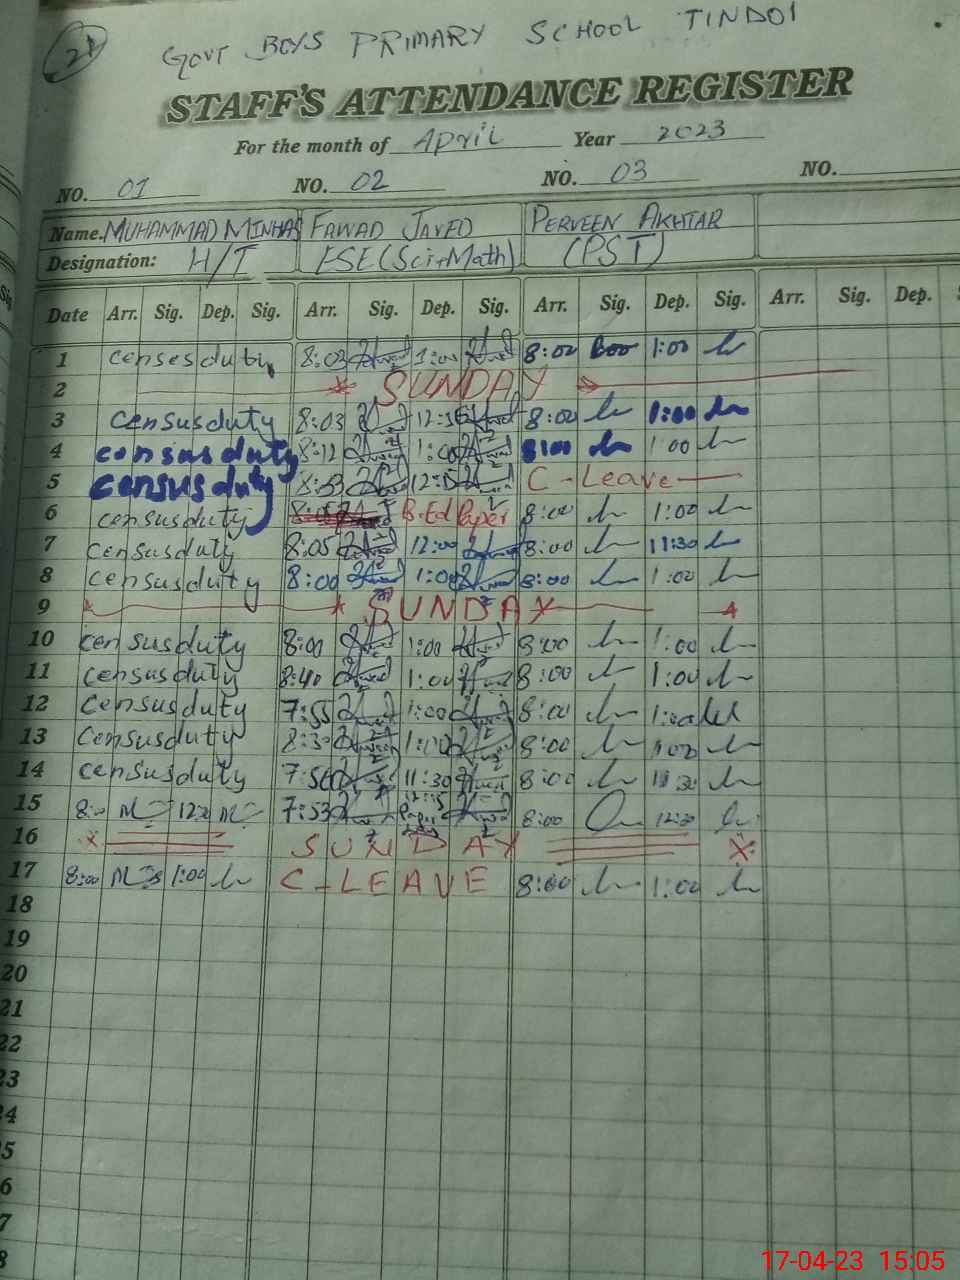 21
GOVT BOYS PRIMARY SCHOOL TINDOI
STAFF'S ATTENDANCE REGISTER
For the month of April Year 2023
NO. 01 NO. 02 NO. 03 NO.
Name. MUHAMMAD MINHAS FAWAD JAVED PERVEEN AKHTAR
Designation: H/T ESE (Sci+Math) (PST)
Date Arr. Sig. Dep. Sig. Arr. Sig. Dep. Sig. Arr. Sig. Dep. Sig. Arr. Sig. Dep.
1 censes duty 8:03 1:00 8:00 1:00
2 SUNDAY
3 census duty 8:03 8:00 1:00
4 census duty 8:12 1:00 8:00 1:00
5 census duty C - Leave
6 census duty B.Ed Paper 8:00 1:00
7 census duty 8:05 12:00 8:00 11:30
8 census duty 8:00 1:00 8:00 1:00
9 SUNDAY
10 census duty 8:00 1:00 8:00 1:00
11 census duty 8:40 1:00 8:00 1:00
12 census duty 7:55 1:00 8:00 1:00
13 census duty 8:30 1:00 8:00 1:00
14 census duty 7:50 11:30 8:00 11:30
15 7:53 12:15 8:00 12:30
16 SUNDAY
17 8:00 1:00 C - LEAVE 8:00 1:00
18
19
20
21
22
23
4
5
6
7
8
17-04-23 15:05